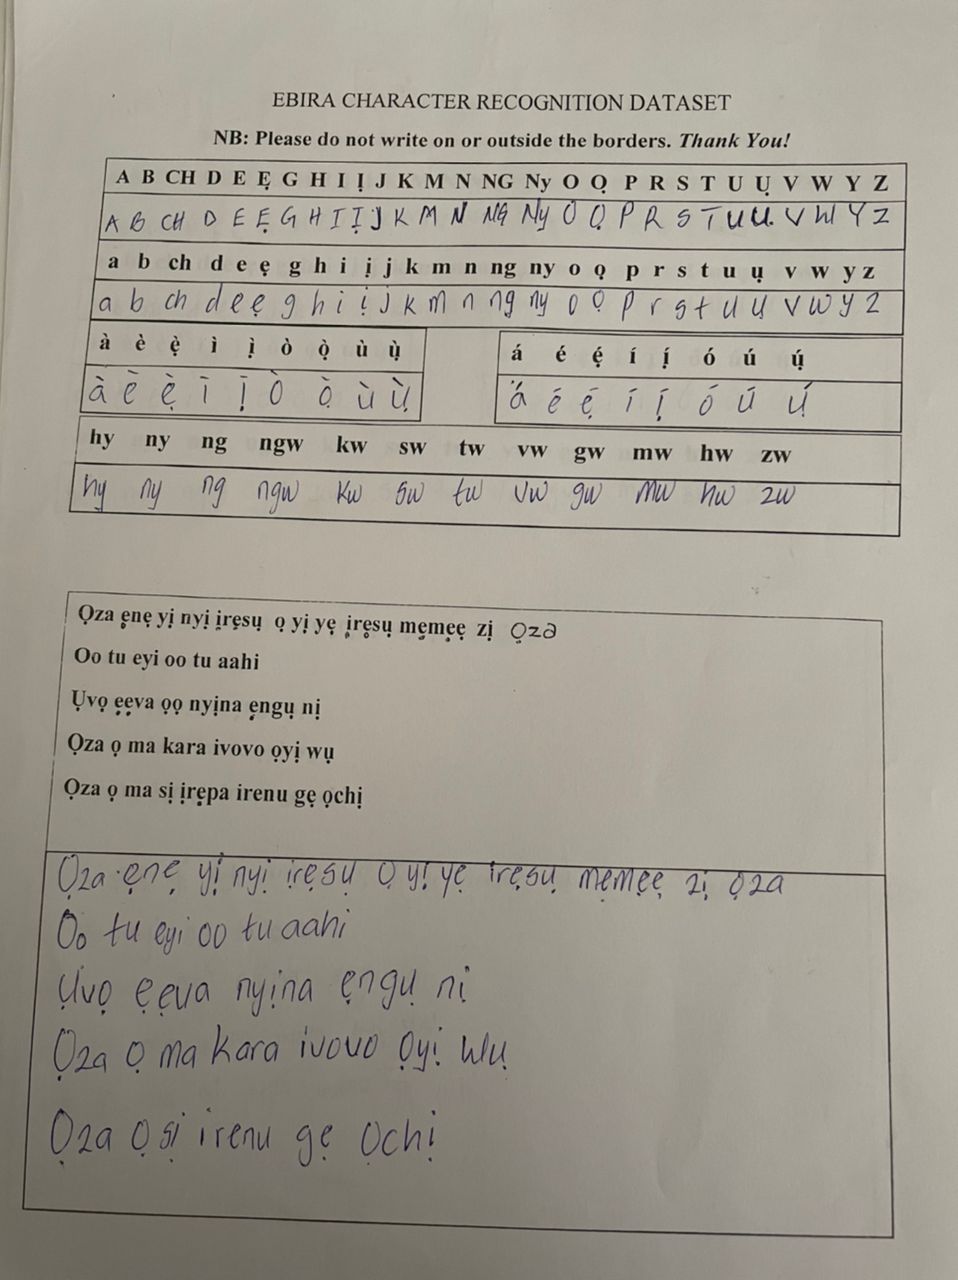 EBIRA CHARACTER RECOGNITION DATASET
NB: Please do not write on or outside the borders. Thank You!
A B CH D E Ẹ G H I Ị J K M N NG Ny O Ọ P R S T U Ụ V W Y Z
A B CH D E Ẹ G H I Ị J K M N NG Ny O Ọ P R S T U Ụ V W Y Z
a b ch d e ẹ g h i ị j k m n ng ny o ọ p r s t u ụ v w y z
a b ch d e ẹ g h i ị j k m n ng ny o ọ p r s t u ụ v w y z
à è ẹ̀ ì ị̀ ò ọ̀ ù ụ̀
à è ẹ̀ ì ị̀ ò ọ̀ ù ụ̀
á é ẹ́ í ị́ ó ú ụ́
á é ẹ́ í ị́ ó ú ụ́
hy ny ng ngw kw sw tw vw gw mw hw zw
hy ny ng ngw kw sw tw vw gw mw hw zw
Ọza ẹnẹ yị nyị ịrẹsụ ọ yị yẹ ịrẹsụ mẹmẹẹ zị Ọza
Oo tu eyi oo tu aahi
Ụvọ ẹẹva ọọ nyịna ẹngụ nị
Ọza ọ ma kara ivovo ọyị wụ
Ọza ọ ma sị ịrẹpa irenu gẹ ọchị
Ọza ẹnẹ yị nyị ịrẹsụ Ọ yị yẹ irẹsụ mẹmẹẹ zị ọza
Oo tu eyi oo tu aahi
Ụvọ ẹẹva nyịna ẹngụ nị
Ọza Ọ ma kara ivovo Ọyị wụ
Ọza Ọ sị irenu gẹ Ọchị